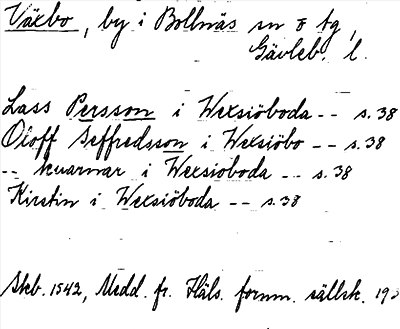 Växbo, by i Bollnäs sn o tg,
Gävleb. l.
Lass Persson i Wexsiöboda -- s. 38
Oloff Seffredsson i Wexsiöbo -- s. 38
-- kuarnar i Wexsiöboda -- s. 38
Kirstin i Wexsiöboda -- s. 38
Skb. 1542, Medd. fr. Häls. fornm. sällsk. 193